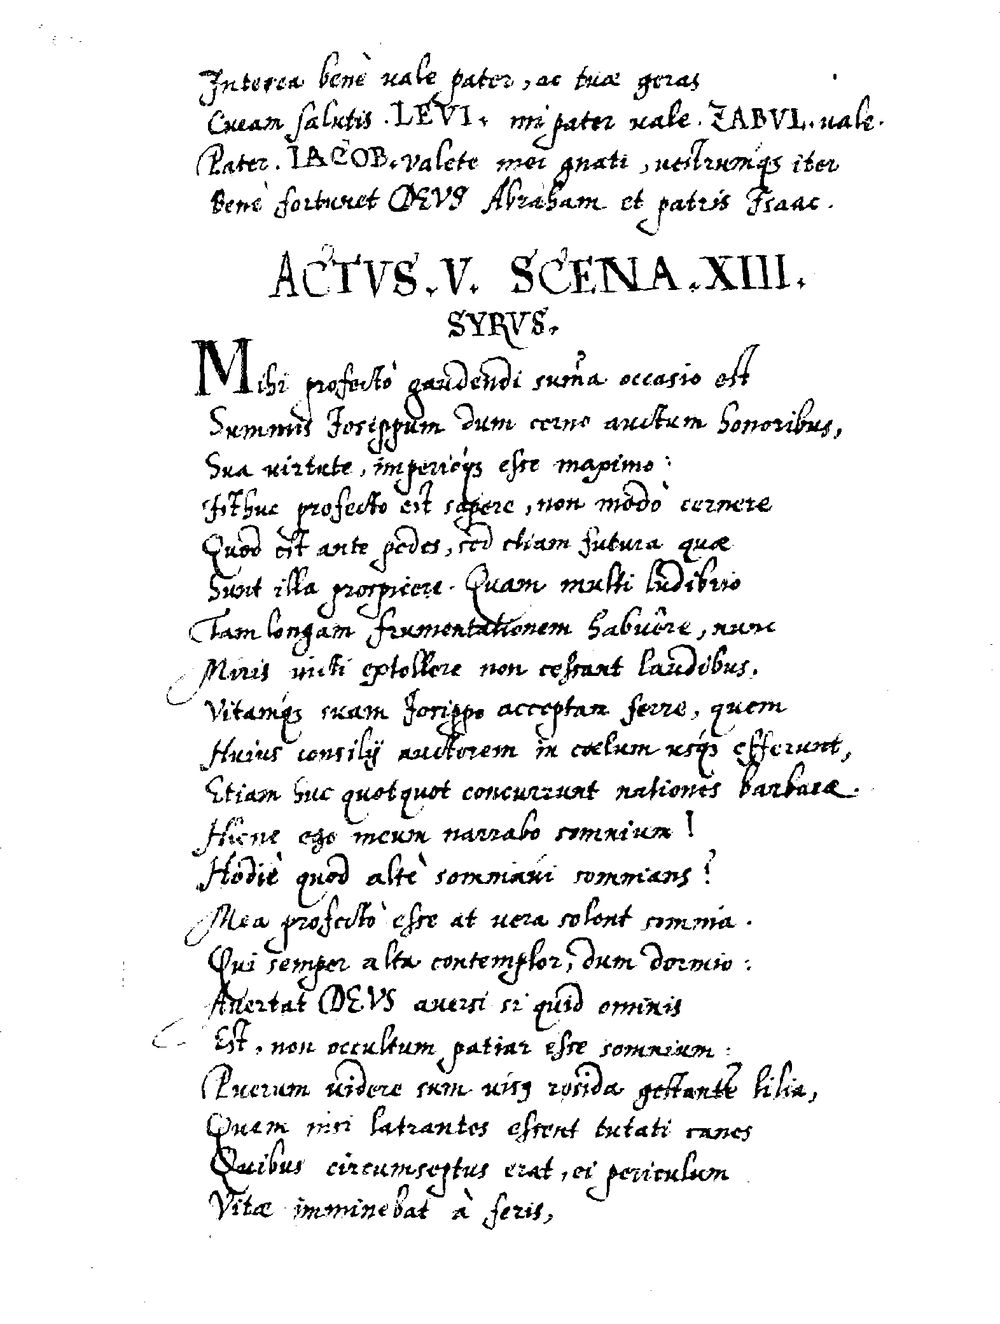 Interea benè uale pater, ac tuæ geras
Curam salutis. LEVI. mi pater uale. ZABVL. uale.
Pater. IACOB. valete mei gnati, uestrumq₃ iter
Benè fortunet DEVS Abraham et patris Isaac.
ACTVS. V. SCENA. XIII.
SYRVS.
Mihi profectò gaudendi sum̃a occasio est
Summis Iosippum dum cerno auctum honoribus,
Sua uirtute, imperioq́₃ esse maximo:
Isthuc profecto est sapere, non modò cernere
Quod est ante pedes, sed etiam futura quæ
Sunt illa prospicere. Quam multi ludibrio
Tam longam frumentationem habuêre, nunc
Miris uicti extollere non cessant laudibus.
Vitamq́₃ suam Iosippo acceptam ferre, quem
Huius consilij auctorem in cœlum usq́₃ efferunt,
Etiam huc quotquot concurrunt nationes barbaræ.
Hicne ego meum narrabo somnium!
Hodiè quod altè somniaui somnians?
Mea profectò esse at uera solent somnia.
Qui semper alta contemplor, dum dormio:
Auertat DEVS auersi si quid ominis
Est, non occultum patiar esse somnium:
Puerum uidere sum uisq rosida gestantẽ lilia,
Quem nisi latrantes essent tutati canes
Quibus circumseptus erat, ei periculum
Vitæ imminebat à feris,